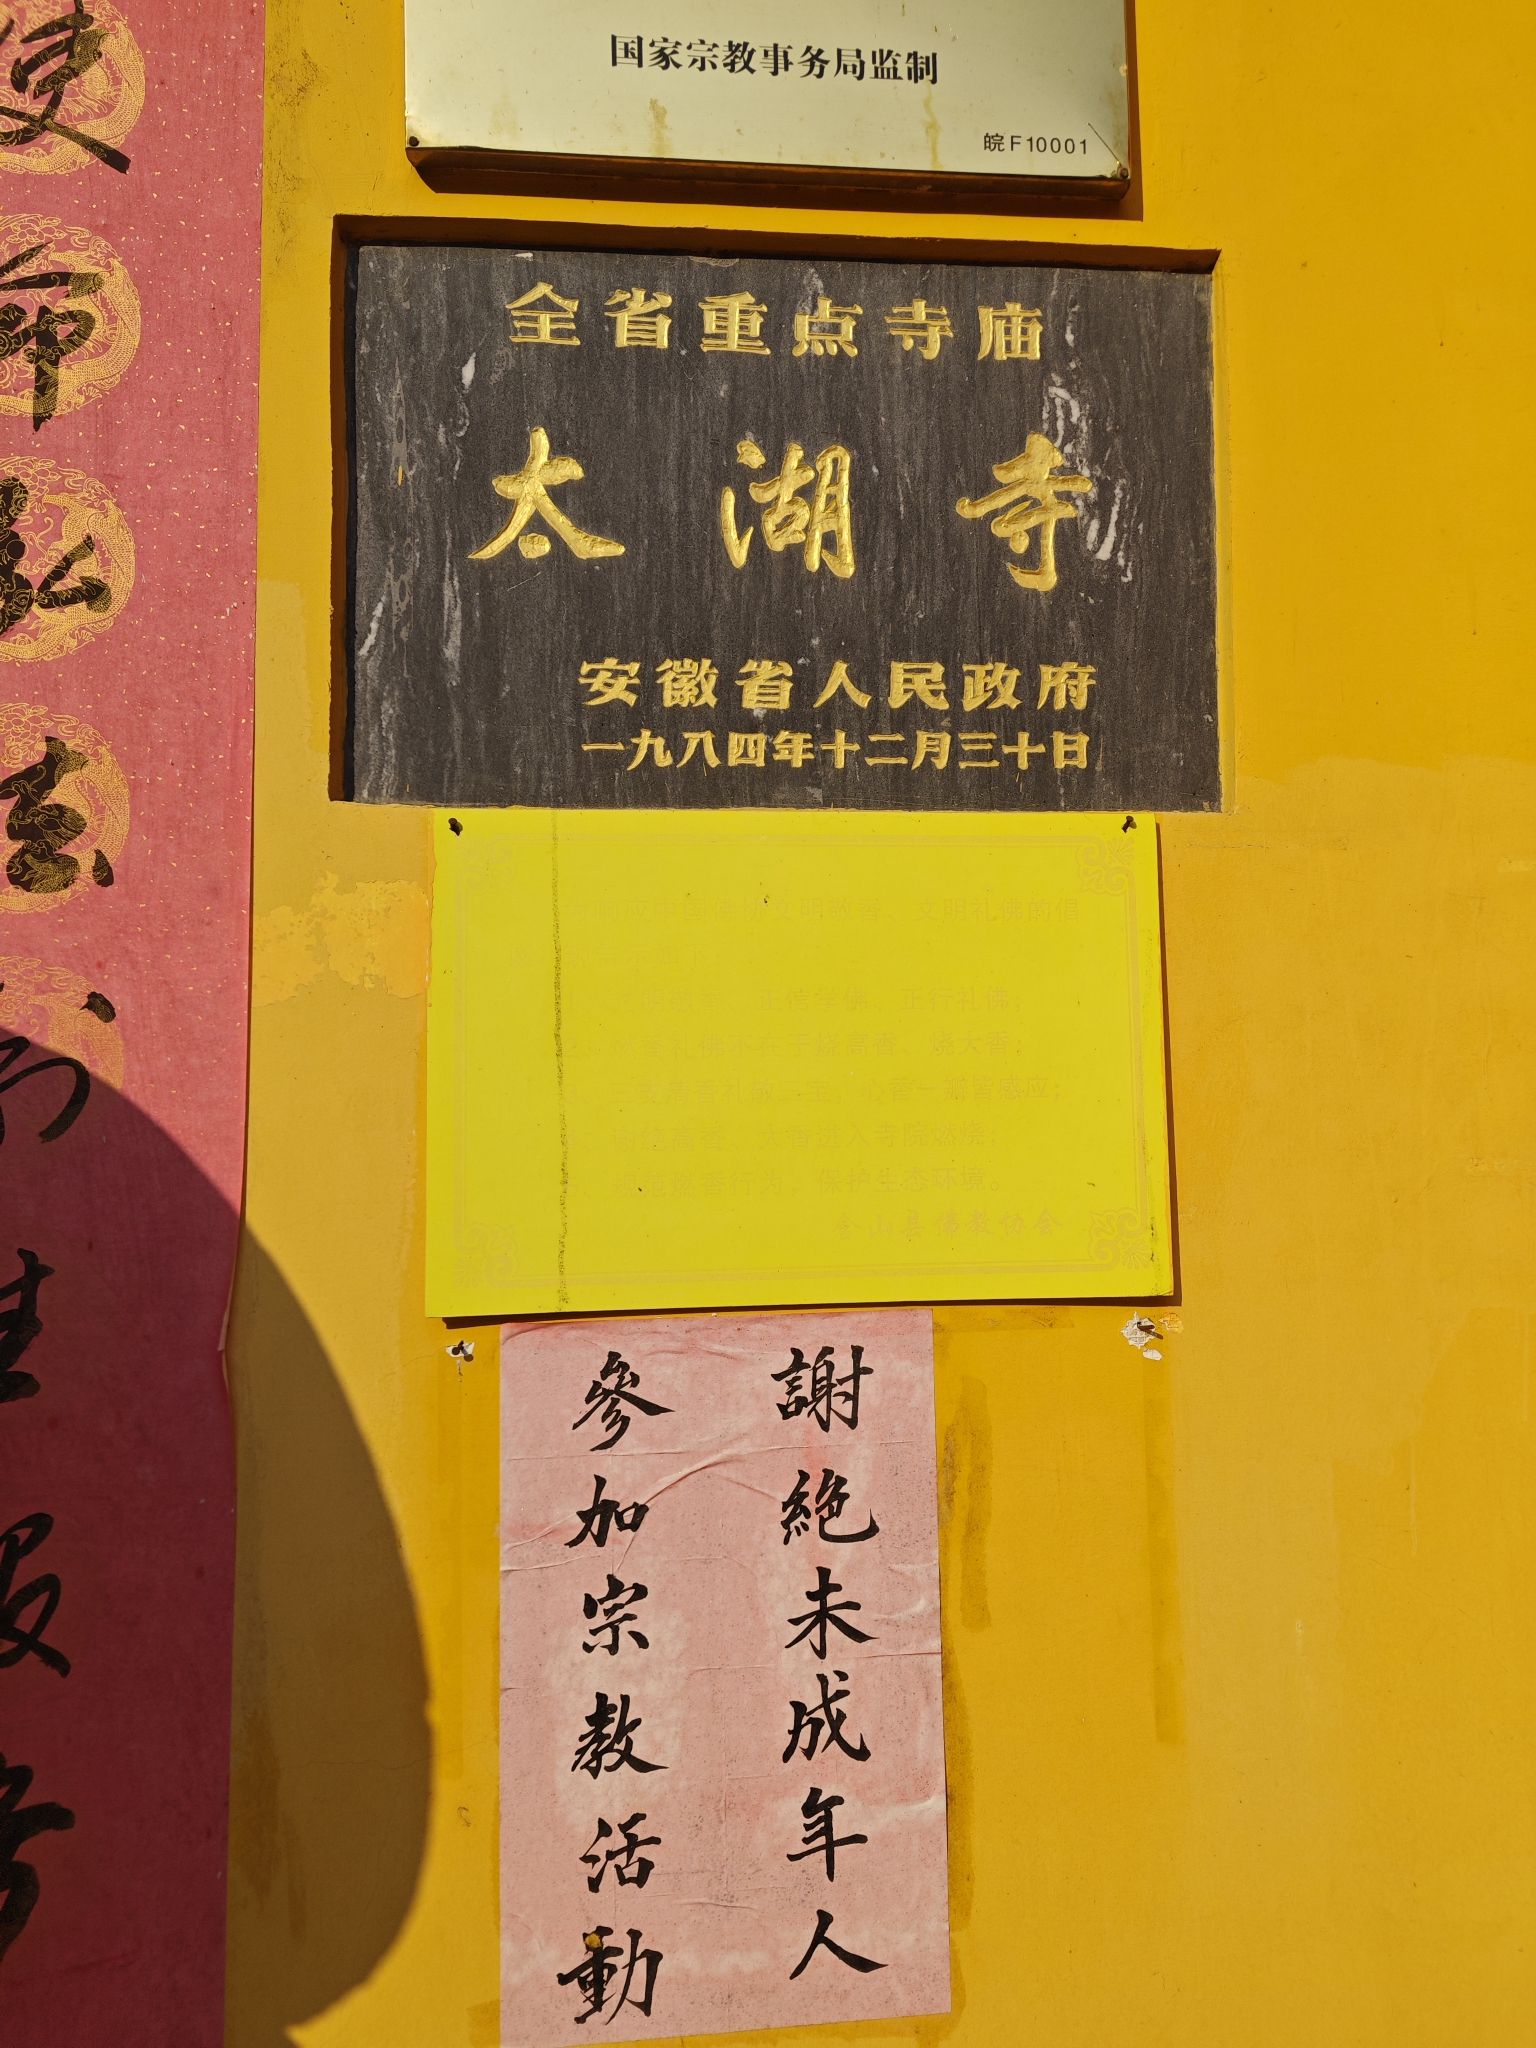 国家宗教事务局监制
皖F10001
全省重点寺庙
太湖寺
安徽省人民政府
一九八四年十二月三十日
响应中国佛协文明敬香、文明礼佛的倡
正信学佛、正行礼佛；
香礼佛不在于烧高香、烧大香；
三支清香礼敬三宝，心香一瓣皆感应；
谢绝高香、大香进入寺院燃烧；
规范燃香行为，保护生态环境。
含山县佛教协会
謝絶未成年人
參加宗教活動